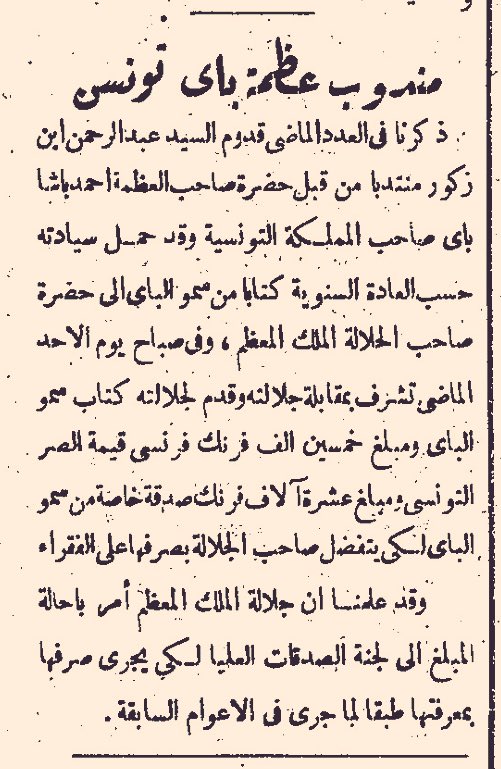 مندوب عظمة باى تونس
ذكرنا فى العدد الماضى قدوم السيد عبد الرحمن ابن
زكور منتدبا من قبل حضرة صاحب العظمة احمد باشا
باى صاحب المملكة التونسية وقد حمل سيادته
حسب العادة السنوية كتابا من سمو الباى الى حضرة
صاحب الجلالة الملك المعظم ، وفى صباح يوم الاحد
الماضى تشرف بمقابلة جلالته وقدم لجلالته كتاب سمو
الباى ومبلغ خمسين الف فرنك فرنسى قيمة الصر
التونسى ومبلغ عشرة آلاف فرنك صدقة خاصة من سمو
الباى لكى يتفضل صاحب الجلالة بصرفها على الفقراء
وقد علمنا ان جلالة الملك المعظم أمر باحالة
المبلغ الى لجنة الصدقات العليا لكي يجرى صرفها
بمعرفتها طبقا لما جرى فى الاعوام السابقة .